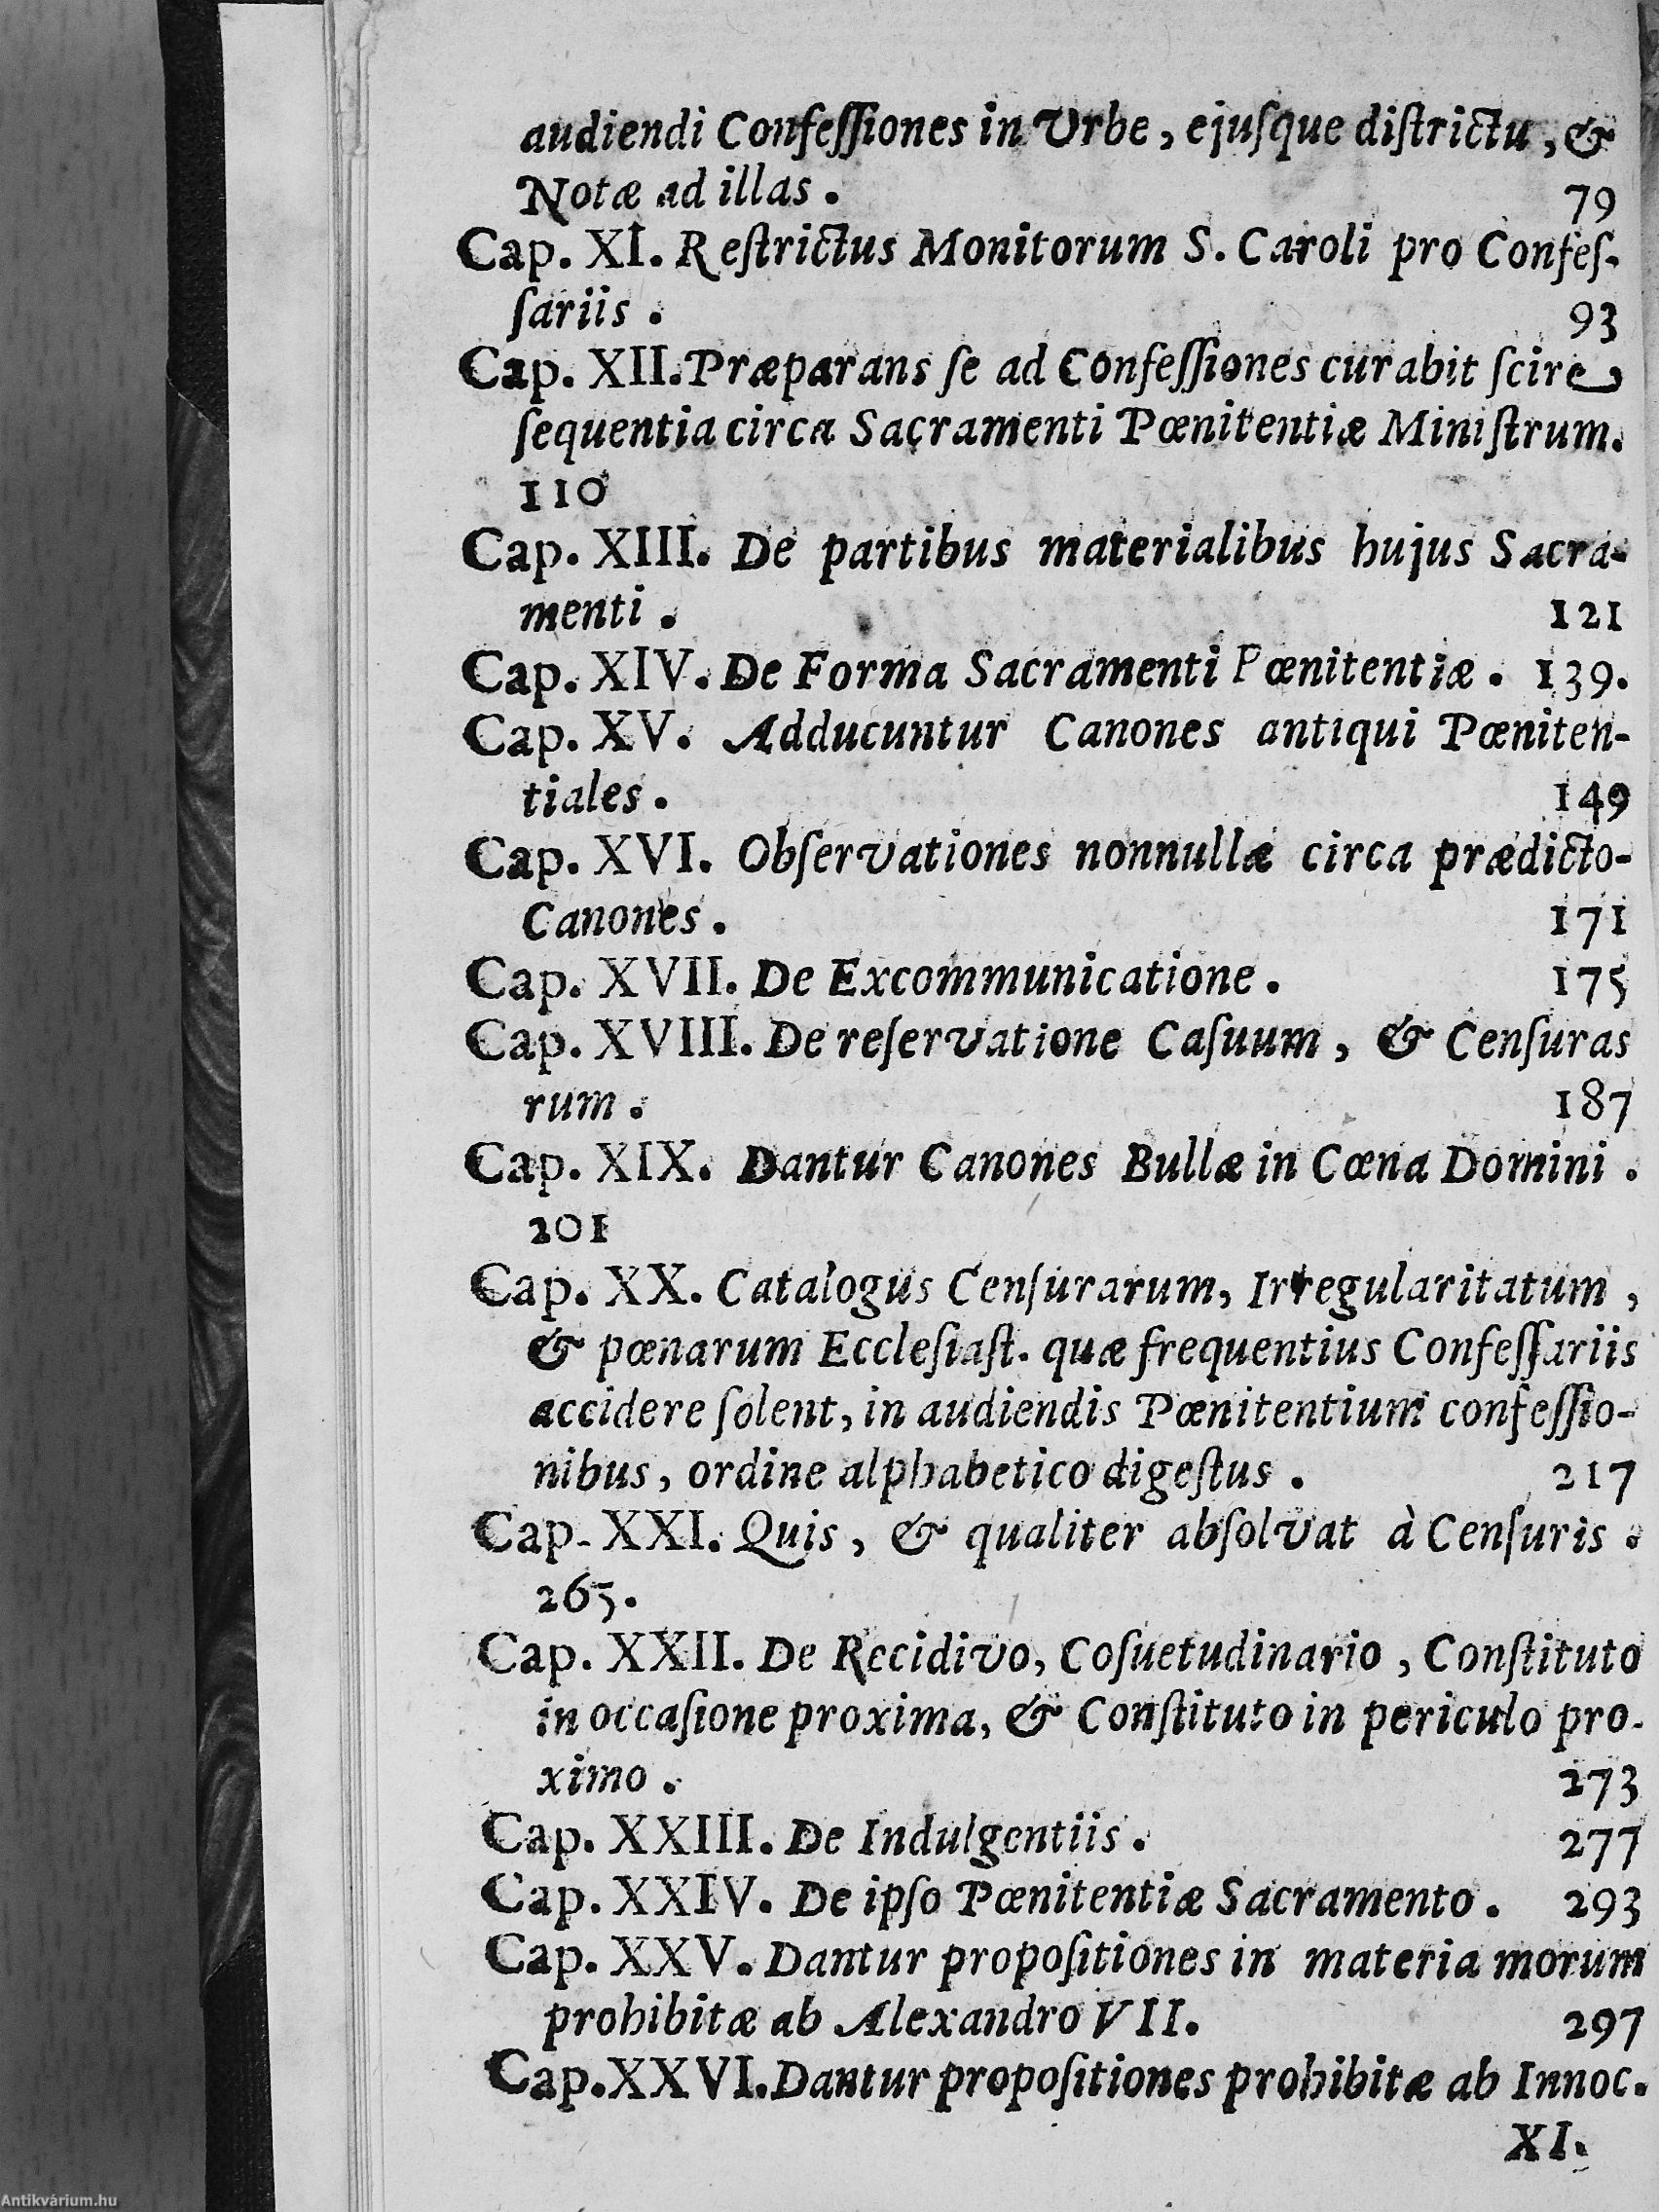 audiendi Confeſſiones in Urbe, ejuſque diſtrictu, &
Notæ ad illas. 79
Cap. XI. Reſtrictus Monitorum S. Caroli pro Confeſ-
ſariis. 93
Cap. XII. Præparans ſe ad Confeſſiones curabit ſcire
ſequentia circa Sacramenti Pœnitentiæ Miniſtrum.
110
Cap. XIII. De partibus materialibus hujus Sacra-
menti. 121
Cap. XIV. De Forma Sacramenti Pœnitentiæ. 139.
Cap. XV. Adducuntur Canones antiqui Pœniten-
tiales. 149
Cap. XVI. Obſervationes nonnullæ circa prædicto-
Canones. 171
Cap. XVII. De Excommunicatione. 175
Cap. XVIII. De reſervatione Caſuum, & Cenſuras
rum. 187
Cap. XIX. Dantur Canones Bullæ in Cœna Domini.
201
Cap. XX. Catalogus Cenſurarum, Irregularitatum,
& pœnarum Eccleſiaſt. quæ frequentius Confeſſariis
accidere ſolent, in audiendis Pœnitentium confeſſio-
nibus, ordine alphabetico digeſtus. 217
Cap. XXI. Quis, & qualiter abſolvat à Cenſuris.
265.
Cap. XXII. De Recidivo, Coſuetudinario, Conſtituto
in occaſione proxima, & Conſtituto in periculo pro-
ximo. 273
Cap. XXIII. De Indulgentiis. 277
Cap. XXIV. De ipſo Pœnitentiæ Sacramento. 293
Cap. XXV. Dantur propoſitiones in materia morum
prohibitæ ab Alexandro VII. 297
Cap. XXVI. Dantur propoſitiones prohibitæ ab Innoc.
XI.
Antikvárium.hu